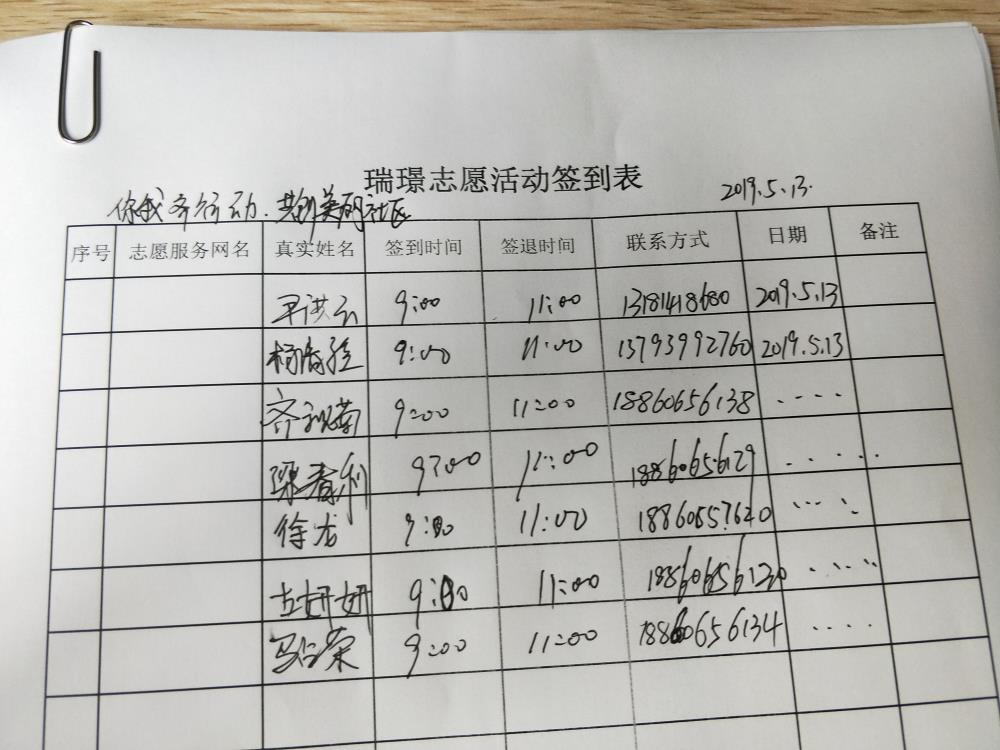 瑞璟志愿活动签到表
你我齐行动.共创美丽社区 2019.5.13.
序号 志愿服务网名 真实姓名 签到时间 签退时间 联系方式 日期 备注
9:00 11:00 13181418680 2019.5.13
9:00 11:00 13793992760 2019.5.13
9:00 11:00 18860656138 ....
9:00 11:00 18860656129 .....
徐龙 9:00 11:00 18860557620 .....
9:00 11:00 18860656120 .....
9:00 11:00 18860656134 ....